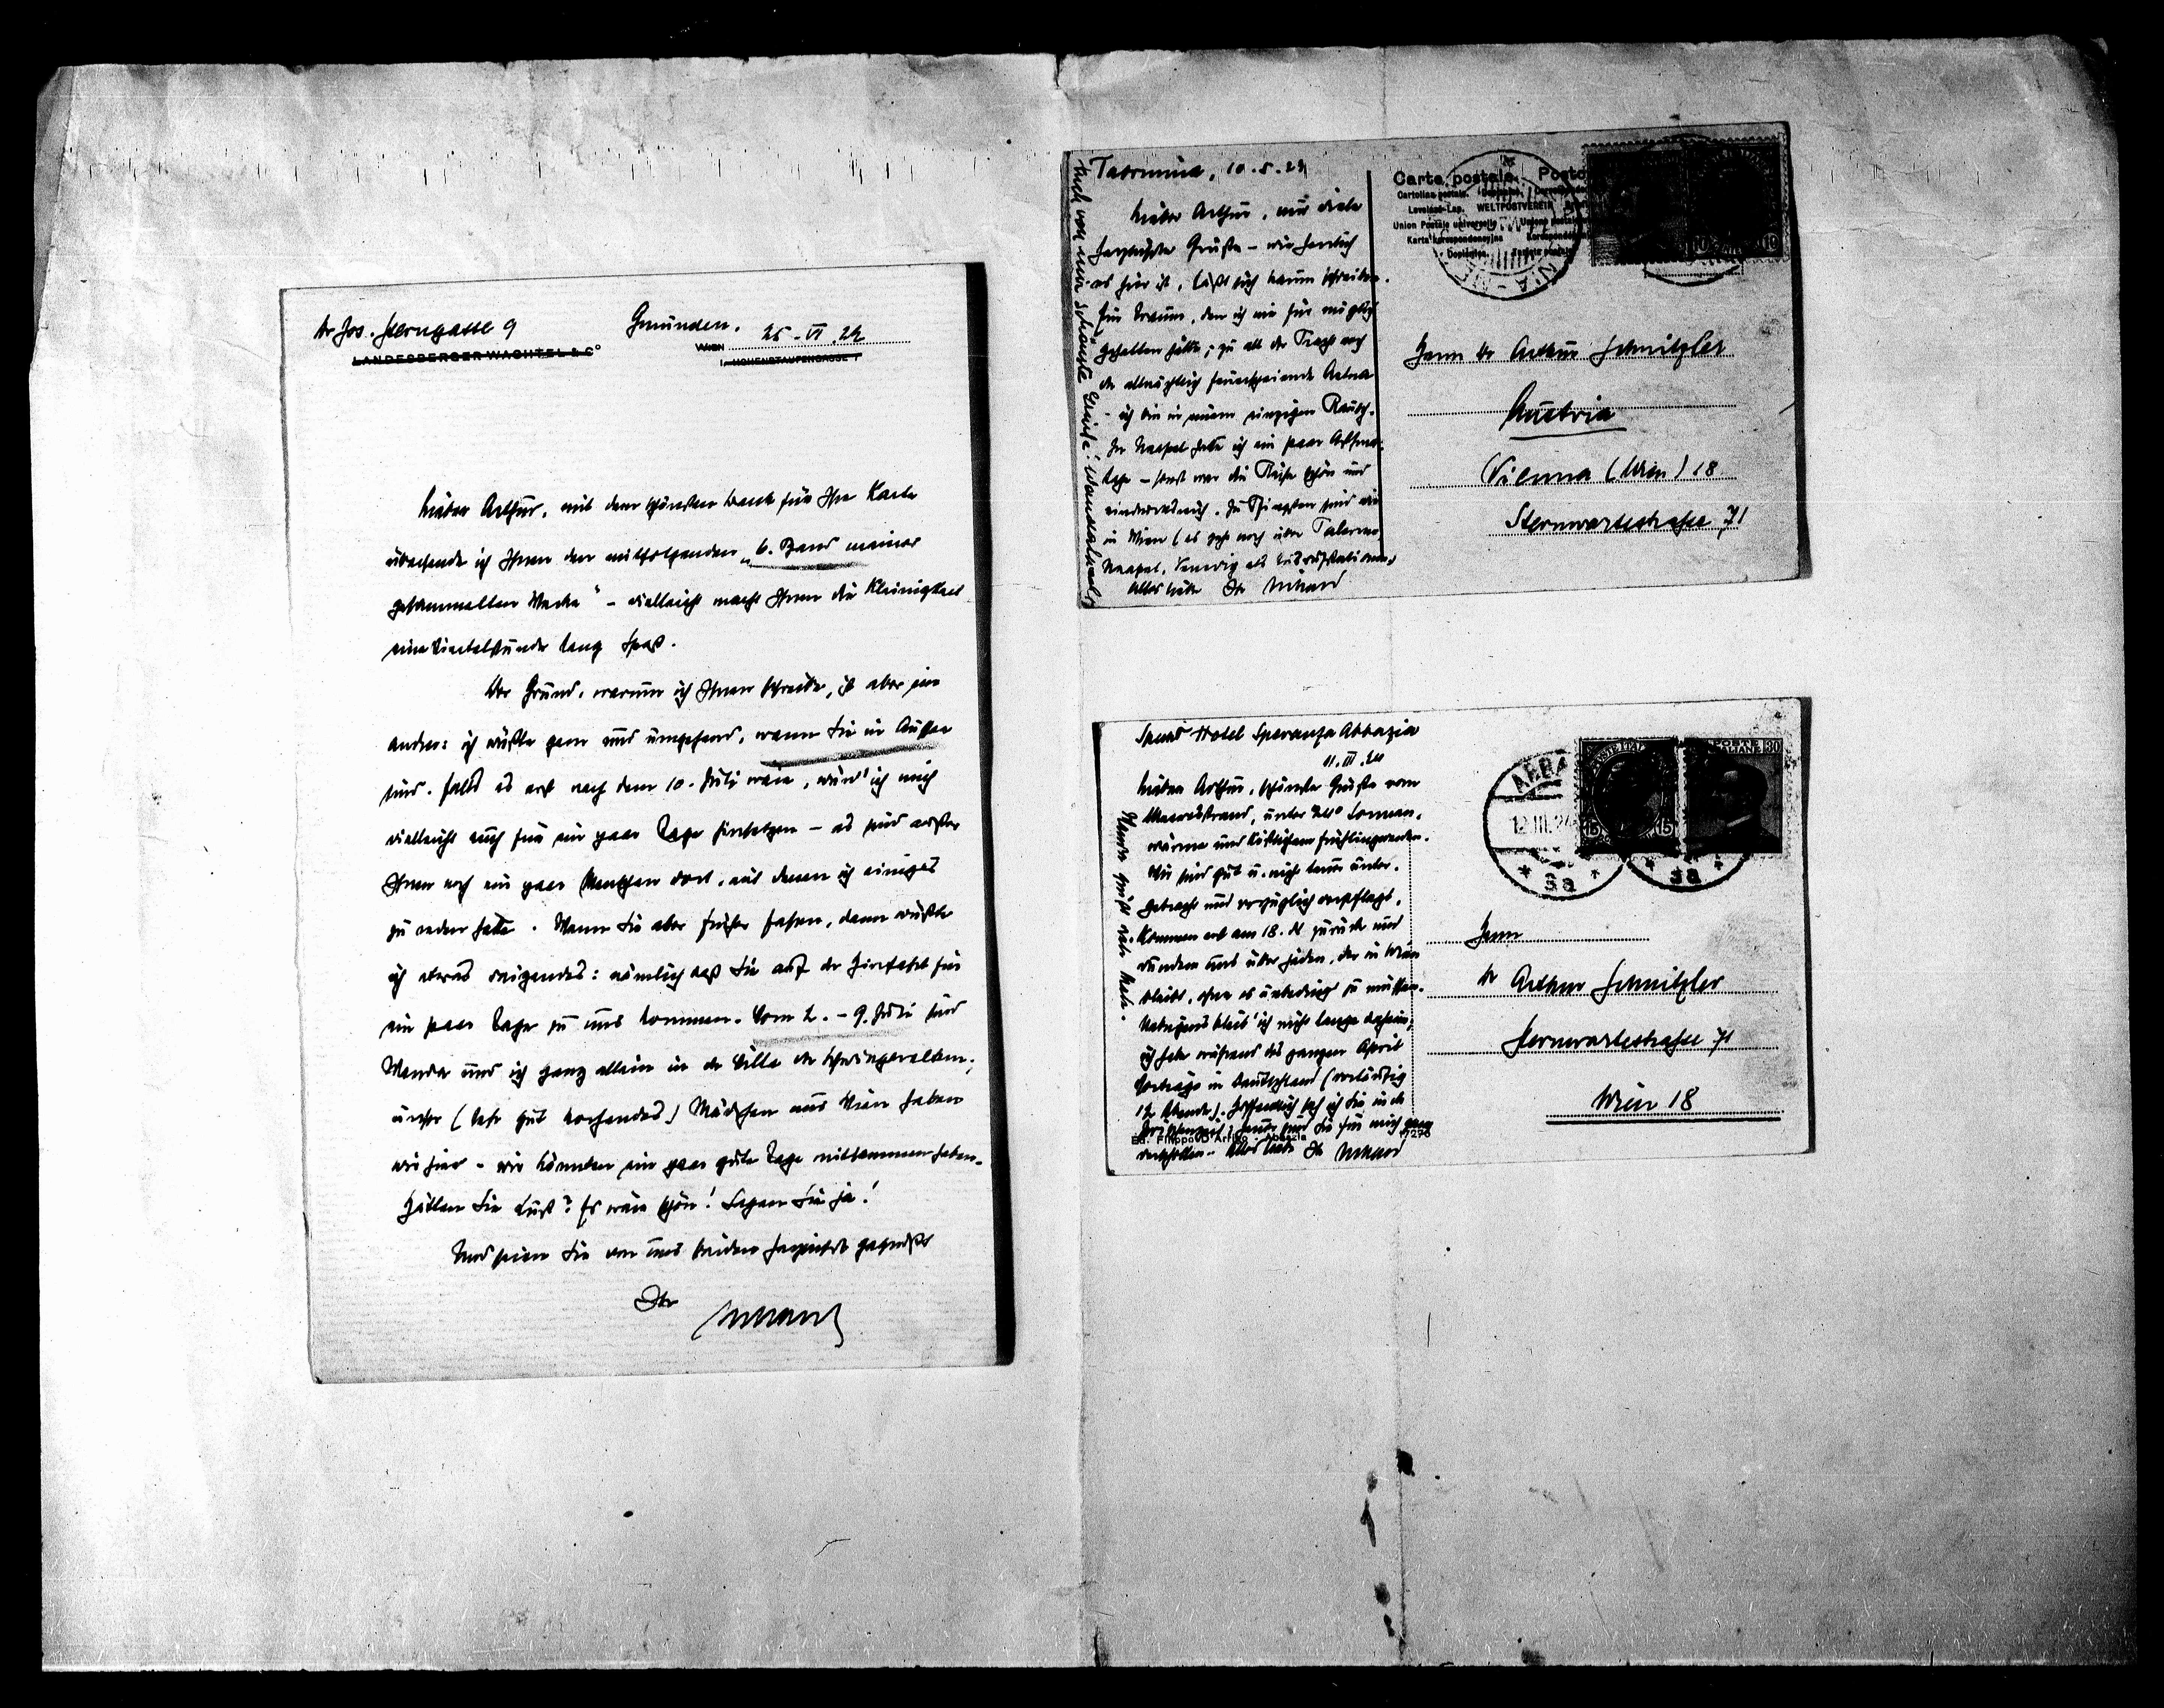 Dr Jos. Sterngasse 9
Gmunden, 25.VI.24
LANDESBERGER WACHTEL & Co
WIEN
I. HOHENSTAUFENGASSE 7
Lieber Arthur, mit dem schönsten Dank für Ihre Karte
übersende ich Ihnen den mitfolgenden „6. Band meiner
gesammelten Werke" – vielleicht macht Ihnen die Kleinigkeit
eine Viertelstunde lang Spaß.
Der Grund, warum ich Ihnen schreibe, ist aber ein
andrer: ich wüßte gern und umgehend, wann Sie in Aussee
sind. Falls es erst nach dem 10. Juli wäre, würd' ich mich
vielleicht auch für ein paar Tage hinsetzen – es sind außer
Ihnen noch ein paar Menschen dort, mit denen ich einiges
zu reden hätte. Wenn Sie aber früher fahren, dann wüßte
ich etwas reizendes: nämlich daß Sie auf der Hinfahrt für
ein paar Tage zu uns kommen. Vom 2. – 9. Juli sind
Wanda und ich ganz allein in der Villa der Schwiegereltern;
unser (sehr gut kochendes) Mädchen aus Wien haben
wir hier – wir könnten ein paar gute Tage mitsammen haben.
Hätten Sie Lust? Es wäre schön! Sagen Sie ja!
Und seien Sie von uns beiden herzlichst gegrüßt
Ihr
Richard
Taormina, 10.5.29
Lieber Arthur, nur viele
herzlichste Grüße – wie herrlich
es hier ist, läßt sich kaum schreiben.
Ein Traum, den ich nie für möglich
gehalten hätte; zu all der Pracht noch
der allnächtlich feuerspeiende Aetna
– ich bin in einem einzigen Rausch.
In Neapel hatte ich ein paar
– sonst war die Reise schön und
eindrucksreich. Zu Pfingsten sind wir
in Wien (es geht noch über Palermo
Neapel, Venedig als
Alles Liebe Ihr Richard
Auch von mir schönste Grüße!
Carte postale Postc
Cartolina postale
Levelező-Lap. WELTPOSTVEREIN
Union Postale universelle
Karta korespondencyjna
Dopisnice
10
Herrn Dr Arthur Schnitzler
Austria
Vienna (Wien) 18
Sternwartestrasse 71
Hotel Speranza Abbazia
11.III.24
Lieber Arthur, schönste Grüße vom
Meeresstrand, unter Sonnen-
wärme und köstlichem
Wir sind gut u. nicht teuer unter-
gebracht und vorzüglich verpflegt,
kommen erst am 18. ds zurück und
wundern uns über jeden, der in Wien
bleibt, ohne es unbedingt zu müssen.
Uebrigens bleib' ich nicht lange daheim;
ich habe während des ganzen April
Vorträge in Deutschland (vorläufig
12 Abende). Hoffentlich seh ich Sie in der
sind Sie für mich ganz
verschollen. Alles Liebe Ihr Richard
Wanda grüßt viele Male.
Ed. Filippo D'Arrigo - Abbazia
ABBA
12.III.24
3a
3a
15
15
30
Herrn
Dr Arthur Schnitzler
Sternwartestrasse 71
Wien 18